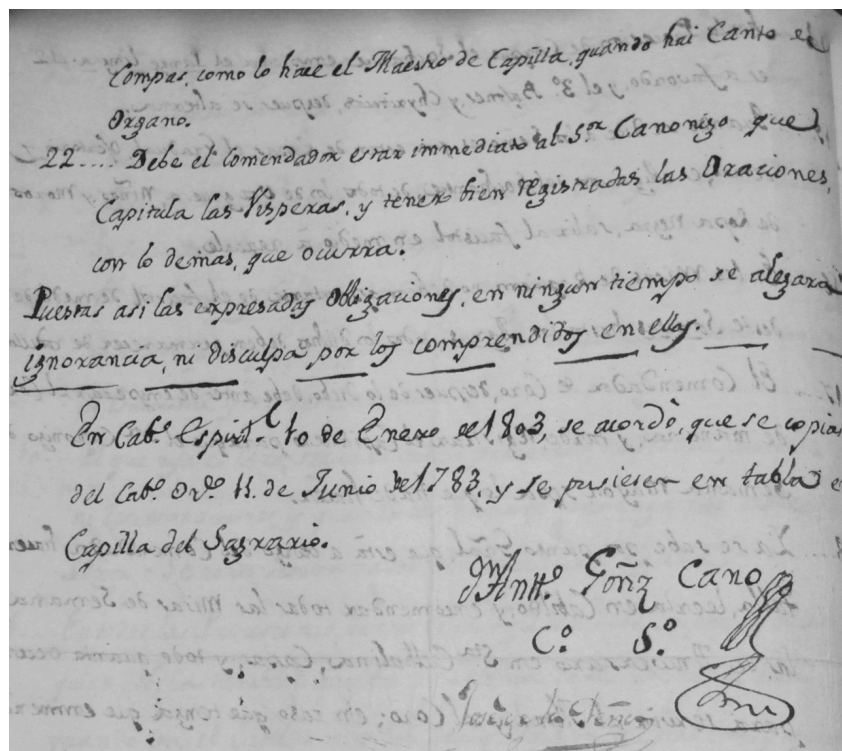 Compas, como lo hace el Maestro de Capilla, quando hai Canto de
Organo.
22.... Debe el Comendador estar immediato al S.or Canonigo que
Capitula las Visperas, y tener bien registradas las Oraciones,
con lo demas, que ocurra.
Puestas asi las expresadas Obligaciones, en ningun tiempo se alegara
ignorancia, ni disculpa por los comprendidos en ellas.
En Cab.o Espirit.l 10 de Enero de 1803, se acordò, que se copias
del Cab.o Ord.o 11. de Junio de 1783, y se pusiesen en tabla e
Capilla del Sagrario.
Ju.n Antt.o Goñz Cano
C.o S.o